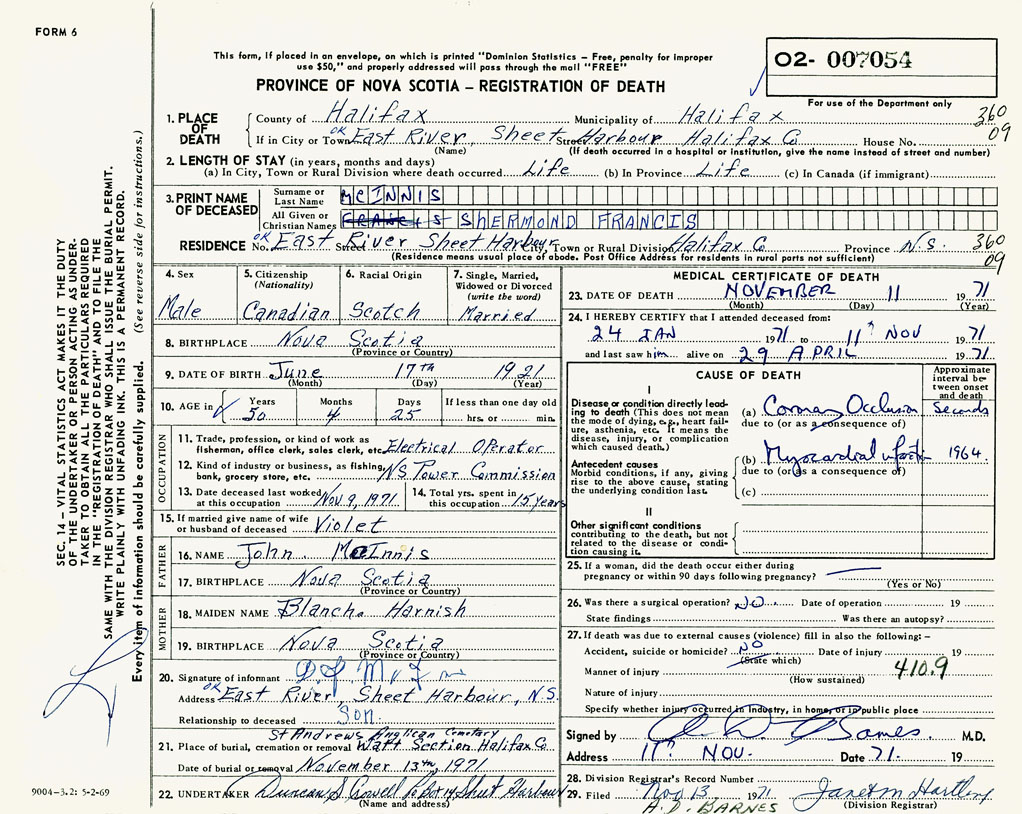 FORM 6
This form, if placed in an envelope, on which is printed "Dominion Statistics – Free, penalty for improper
use $50," and properly addressed will pass through the mail "FREE"
02- 007054
For use of the Department only
PROVINCE OF NOVA SCOTIA – REGISTRATION OF DEATH
1. PLACE OF DEATH
County of Halifax Municipality of Halifax 360
If in City or Town OK East River, Sheet Street Harbour Halifax Co House No. 09
(Name) (If death occurred in a hospital or institution, give the name instead of street and number)
2. LENGTH OF STAY (in years, months and days)
(a) In City, Town or Rural Division where death occurred Life (b) In Province Life (c) In Canada (if immigrant)
3. PRINT NAME OF DECEASED
Surname or Last Name McINNIS
All Given or Christian Names SHERMOND FRANCIS
RESIDENCE No. OK East River Sheet Harbour City, Town or Rural Division Halifax Co Province N.S. 360
09
(Residence means usual place of abode. Post Office Address for residents in rural parts not sufficient)
4. Sex
Male
5. Citizenship
(Nationality)
Canadian
6. Racial Origin
Scotch
7. Single, Married,
Widowed or Divorced
(write the word)
Married
8. BIRTHPLACE Nova Scotia
(Province or Country)
9. DATE OF BIRTH June 17th 1921
(Month) (Day) (Year)
10. AGE in Years Months Days If less than one day old
50 4 25 hrs. or min.
OCCUPATION
11. Trade, profession, or kind of work as
fisherman, office clerk, sales clerk, etc. Electrical Operator
12. Kind of industry or business, as fishing,
bank, grocery store, etc. NS Power Commission
13. Date deceased last worked
at this occupation Nov 9, 1971
14. Total yrs. spent in
this occupation 15 years
15. If married give name of wife
or husband of deceased Violet
FATHER
16. NAME John McInnis
17. BIRTHPLACE Nova Scotia
(Province or Country)
MOTHER
18. MAIDEN NAME Blanche Harnish
19. BIRTHPLACE Nova Scotia
(Province or Country)
20. Signature of informant
Address OK East River, Sheet Harbour, N.S.
Relationship to deceased Son.
St Andrews Anglican Cemetary
21. Place of burial, cremation or removal Watt Section Halifax Co
Date of burial or removal November 13th, 1971
22. UNDERTAKER Duncan S Crowell Po Box 14 Sheet Harbour
(Name and address)
MEDICAL CERTIFICATE OF DEATH
23. DATE OF DEATH NOVEMBER 11 1971
(Month) (Day) (Year)
24. I HEREBY CERTIFY that I attended deceased from:
24 JAN 1971 to 11th NOV 1971
and last saw him alive on 29 APRIL 1971
CAUSE OF DEATH
Approximate
interval be-
tween onset
and death
I
Disease or condition directly lead-
ing to death (This does not mean
the mode of dying, e.g., heart fail-
ure, asthenia, etc. It means the
disease, injury, or complication
which caused death.)
(a) Coronary Occlusion Seconds
due to (or as a consequence of)
Antecedent causes
Morbid conditions, if any, giving
rise to the above cause, stating
the underlying condition last.
(b) Myocardial infarction 1964.
due to (or as a consequence of)
(c)
II
Other significant conditions
contributing to the death, but not
related to the disease or condi-
tion causing it.
25. If a woman, did the death occur either during
pregnancy or within 90 days following pregnancy?
(Yes or No)
26. Was there a surgical operation? No Date of operation 19
State findings Was there an autopsy?
27. If death was due to external causes (violence) fill in also the following:–
Accident, suicide or homicide? NO Date of injury 19
(State which)
Manner of injury 410.9
(How sustained)
Nature of injury
Specify whether injury occurred in industry, in home, or in public place
Signed by A D Barnes. M.D.
Address 11th NOV. Date 71. 19
28. Division Registrar's Record Number
29. Filed Nov 13 1971 Janet M Hartling
A.D. BARNES (Division Registrar)
SEC. 14 – VITAL STATISTICS ACT MAKES IT THE DUTY
OF THE UNDERTAKER OR PERSON ACTING AS UNDER-
TAKER TO OBTAIN ALL THE PARTICULARS REQUIRED
IN THE "REGISTRATION OF DEATH" AND TO FILE THE
SAME WITH THE DIVISION REGISTRAR WHO SHALL ISSUE THE BURIAL PERMIT.
WRITE PLAINLY WITH UNFADING INK. THIS IS A PERMANENT RECORD.
Every item of information should be carefully supplied. (See reverse side for instructions.)
9004–3.2: 5-2-69